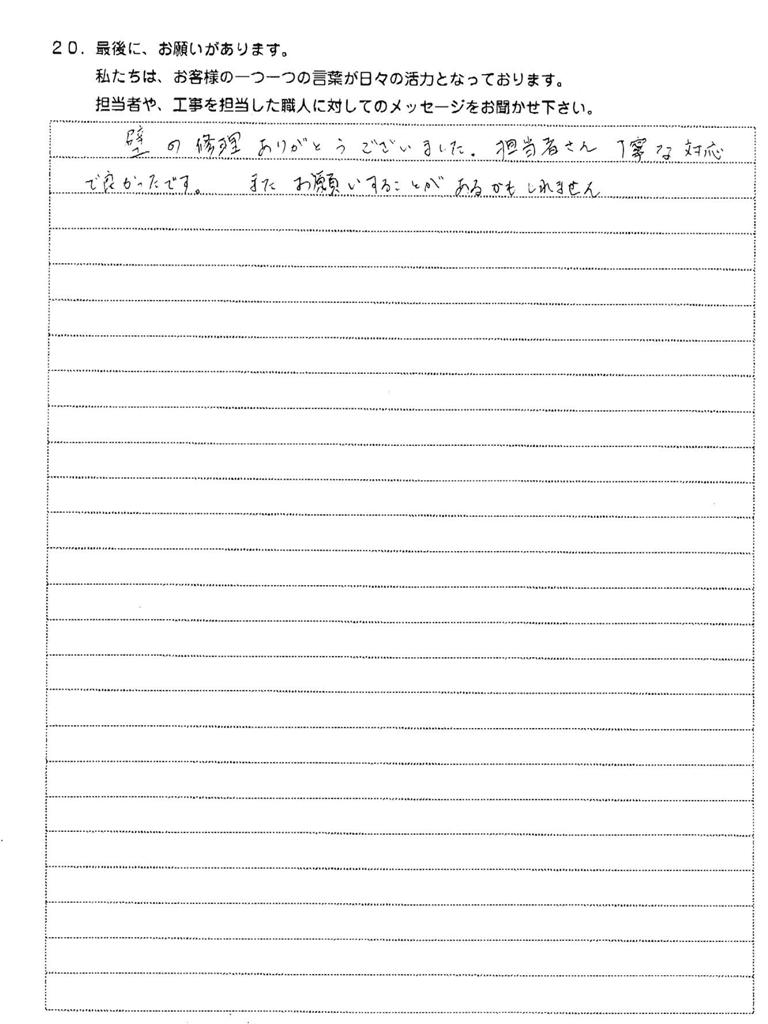 20. 最後に、お願いがあります。
私たちは、お客様の一つ一つの言葉が日々の活力となっております。
担当者や、工事を担当した職人に対してのメッセージをお聞かせ下さい。
壁の修理ありがとうございました。担当者さん 丁寧な対応
で良かったです。 またお願いすることがあるかもしれません